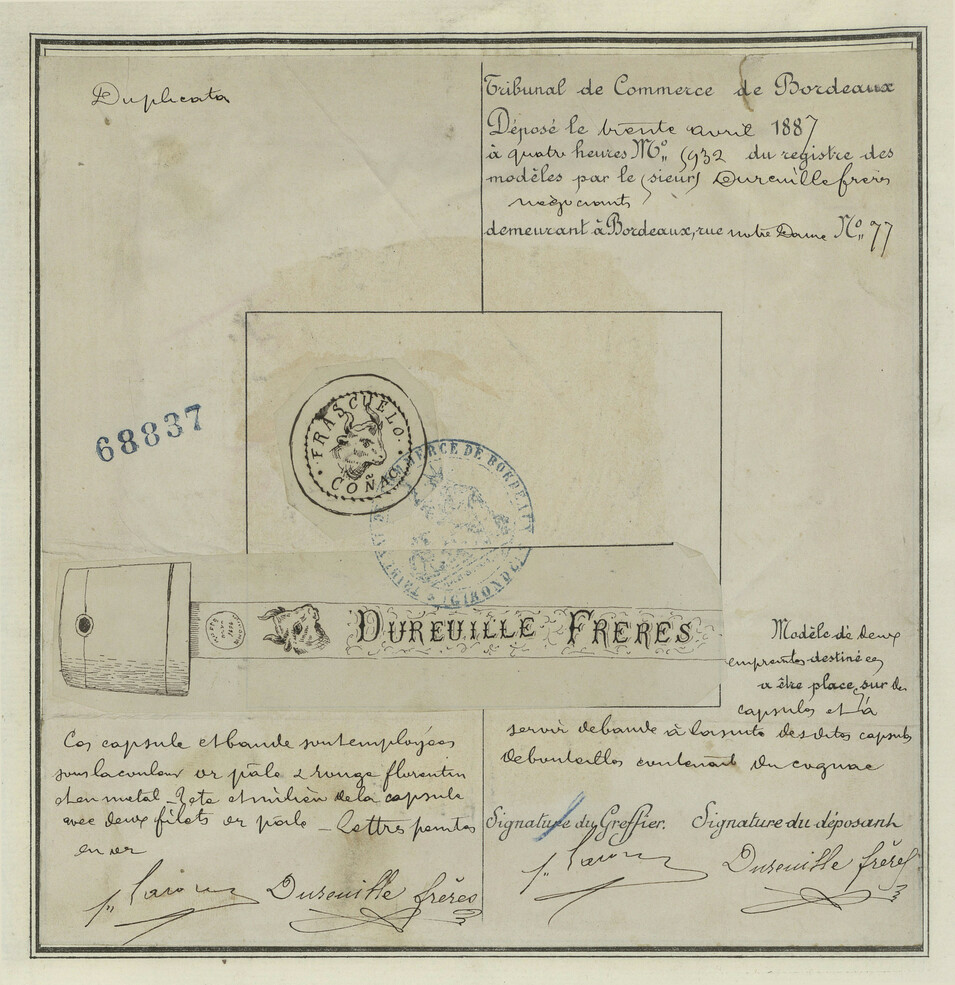 Duplicata
Tribunal de Commerce de Bordeaux
Déposé le trente avril 1887
à quatre heures No. 5932 du registre des
modèles par le (sieur) Dureuille frères
négociants
demeurant à Bordeaux, rue notre Dame No. 77
68837
FRASCUELO
COÑAC
COMMERCE DE BORDEAUX
GIRONDE
DUREUILLE FRERES
Modèle de deux
empreintes destinées
a être placé sur des
capsules et à
servir de bande à la suite desdites capsules
de bouteilles contenant du cognac
Ces capsule et bande sont employées
sous la couleur or pâle & rouge florentin
et en metal _ Tete et milieu de la capsule
avec deux filets or pâle _ Lettres peintes
en or
Signature du Greffier. Signature du déposant
Dureuille frères
Dureuille frères